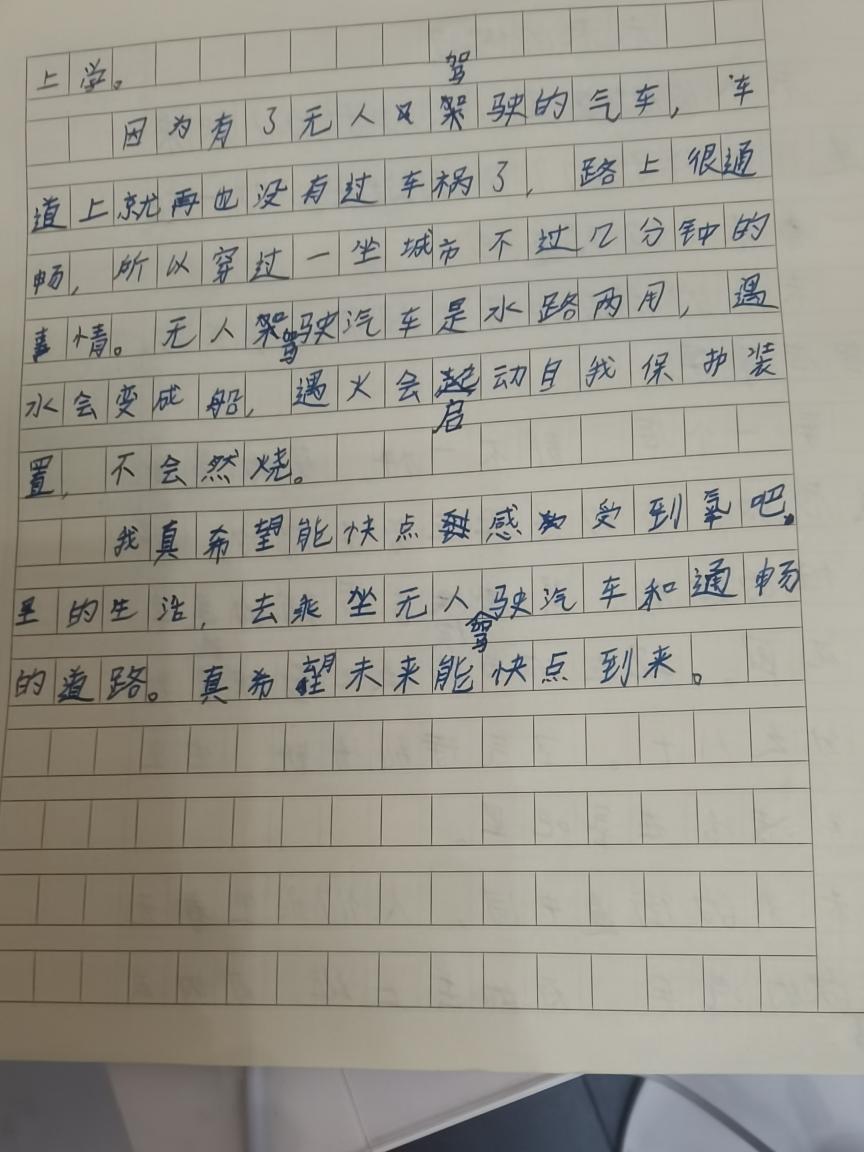 上学。
因为有了无人驾驶的气车，车
道上就再也没有过车祸了，路上很通
畅，所以穿过一坐城市不过几分钟的
事情。无人驾驶汽车是水路两用，遇
水会变成船，遇火会启动自我保护装
置，不会然烧。
我真希望能快点感受到氧吧
里的生活，去乘坐无人驾驶汽车和通畅
的道路。真希望未来能快点到来。